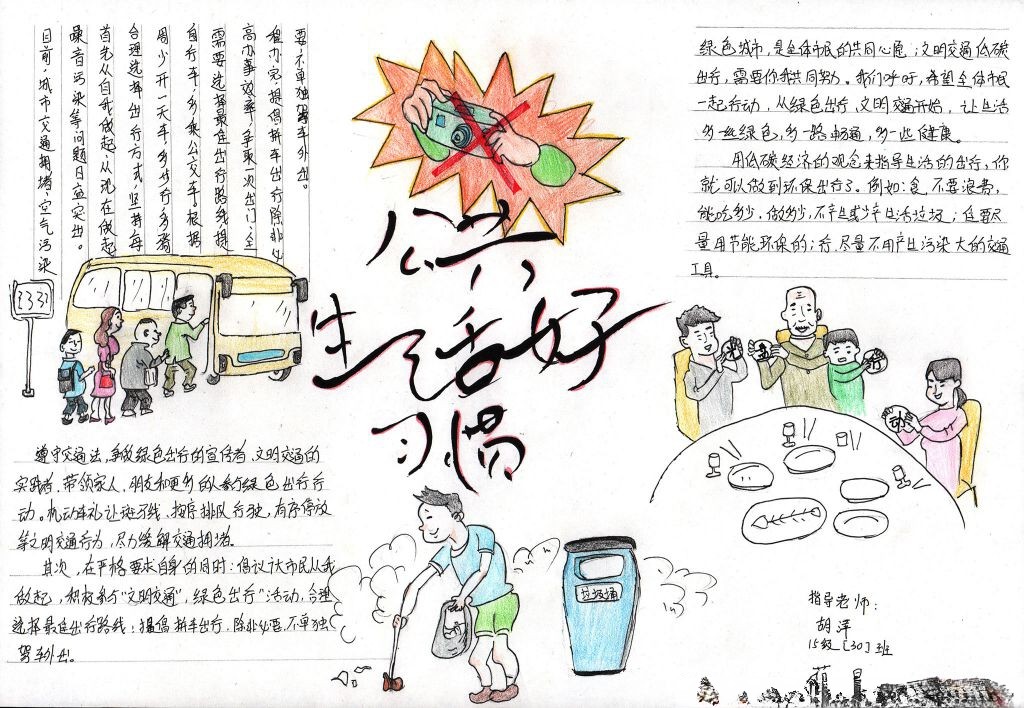 目前，城市交通拥堵、空气污染
噪音污染等问题日益突出。
首先从自我做起，从现在做起
合理选择出行方式，坚持每
周少开一天车，多步行，多骑
自行车，多乘公交车。根据
需要选择最佳出行路线，提
高办事效率，争取一次出门，全
程办完提倡拼车出行除非必
要，不单独驾车外出。
公共
生活好
习惯
绿色城市，是全体市民的共同心愿；文明交通低碳
出行，需要你我共同努力。我们呼吁，希望全体市民
一起行动，从绿色出行，文明交通开始，让生活
多一丝绿色，多一路畅通，多一些健康。
用低碳经济的观念来指导生活的出行，你
就可以做到环保出行了。例如：食，不要浪费，
能吃多少，做多少，不产生或少产生活垃圾；住要尽
量用节能环保的；行，尽量不用产生污染大的交通
工具。
遵守交通法，争做绿色出行的宣传者，文明交通的
实践者，带领家人，朋友和更多的人参行绿色出行行
动。机动车礼让斑马线，按序排队行驶，有序停放
等文明交通行为，尽力缓解交通拥堵。
其次，在严格要求自身的同时：倡议广大市民从我
做起，积极参与"文明交通"，绿色出行"活动，合理
选择最佳出行路线；提倡拼车出行，除非必要，不单独
驾车外出。
垃圾桶
指导老师：
胡萍
15级[30]班